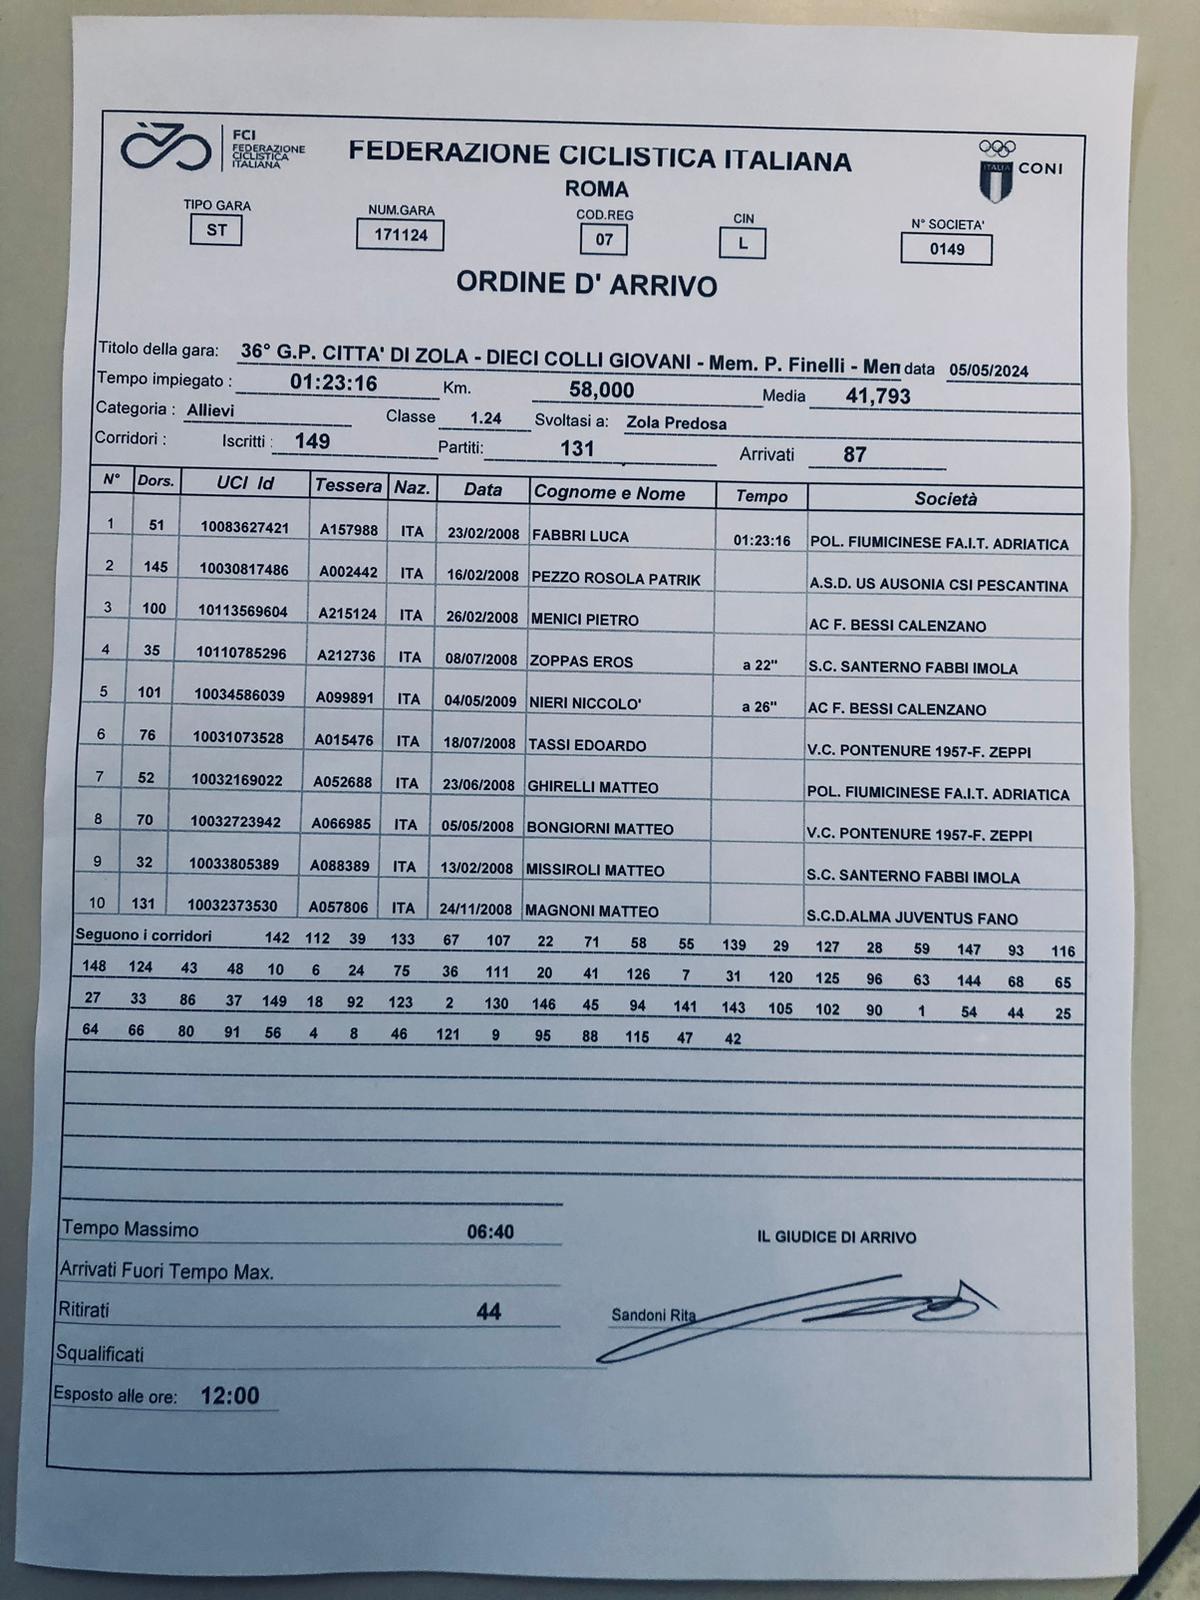 FCI
FEDERAZIONE
CICLISTICA
ITALIANA
FEDERAZIONE CICLISTICA ITALIANA
ROMA
ITALIA
CONI
TIPO GARA NUM.GARA COD.REG CIN N° SOCIETA'
ST 171124 07 L 0149
ORDINE D' ARRIVO
Titolo della gara: 36° G.P. CITTA' DI ZOLA - DIECI COLLI GIOVANI - Mem. P. Finelli - Men data 05/05/2024
Tempo impiegato : 01:23:16 Km. 58,000 Media 41,793
Categoria : Allievi Classe 1.24 Svoltasi a: Zola Predosa
Corridori : Iscritti : 149 Partiti: 131 Arrivati 87
N° Dors. UCI Id Tessera Naz. Data Cognome e Nome Tempo Società
1 51 10083627421 A157988 ITA 23/02/2008 FABBRI LUCA 01:23:16 POL. FIUMICINESE FA.I.T. ADRIATICA
2 145 10030817486 A002442 ITA 16/02/2008 PEZZO ROSOLA PATRIK A.S.D. US AUSONIA CSI PESCANTINA
3 100 10113569604 A215124 ITA 26/02/2008 MENICI PIETRO AC F. BESSI CALENZANO
4 35 10110785296 A212736 ITA 08/07/2008 ZOPPAS EROS a 22" S.C. SANTERNO FABBI IMOLA
5 101 10034586039 A099891 ITA 04/05/2009 NIERI NICCOLO' a 26" AC F. BESSI CALENZANO
6 76 10031073528 A015476 ITA 18/07/2008 TASSI EDOARDO V.C. PONTENURE 1957-F. ZEPPI
7 52 10032169022 A052688 ITA 23/06/2008 GHIRELLI MATTEO POL. FIUMICINESE FA.I.T. ADRIATICA
8 70 10032723942 A066985 ITA 05/05/2008 BONGIORNI MATTEO V.C. PONTENURE 1957-F. ZEPPI
9 32 10033805389 A088389 ITA 13/02/2008 MISSIROLI MATTEO S.C. SANTERNO FABBI IMOLA
10 131 10032373530 A057806 ITA 24/11/2008 MAGNONI MATTEO S.C.D.ALMA JUVENTUS FANO
Seguono i corridori 142 112 39 133 67 107 22 71 58 55 139 29 127 28 59 147 93 116
148 124 43 48 10 6 24 75 36 111 20 41 126 7 31 120 125 96 63 144 68 65
27 33 86 37 149 18 92 123 2 130 146 45 94 141 143 105 102 90 1 54 44 25
64 66 80 91 56 4 8 46 121 9 95 88 115 47 42
Tempo Massimo 06:40
IL GIUDICE DI ARRIVO
Arrivati Fuori Tempo Max.
Ritirati 44
Sandoni Rita
Squalificati
Esposto alle ore: 12:00